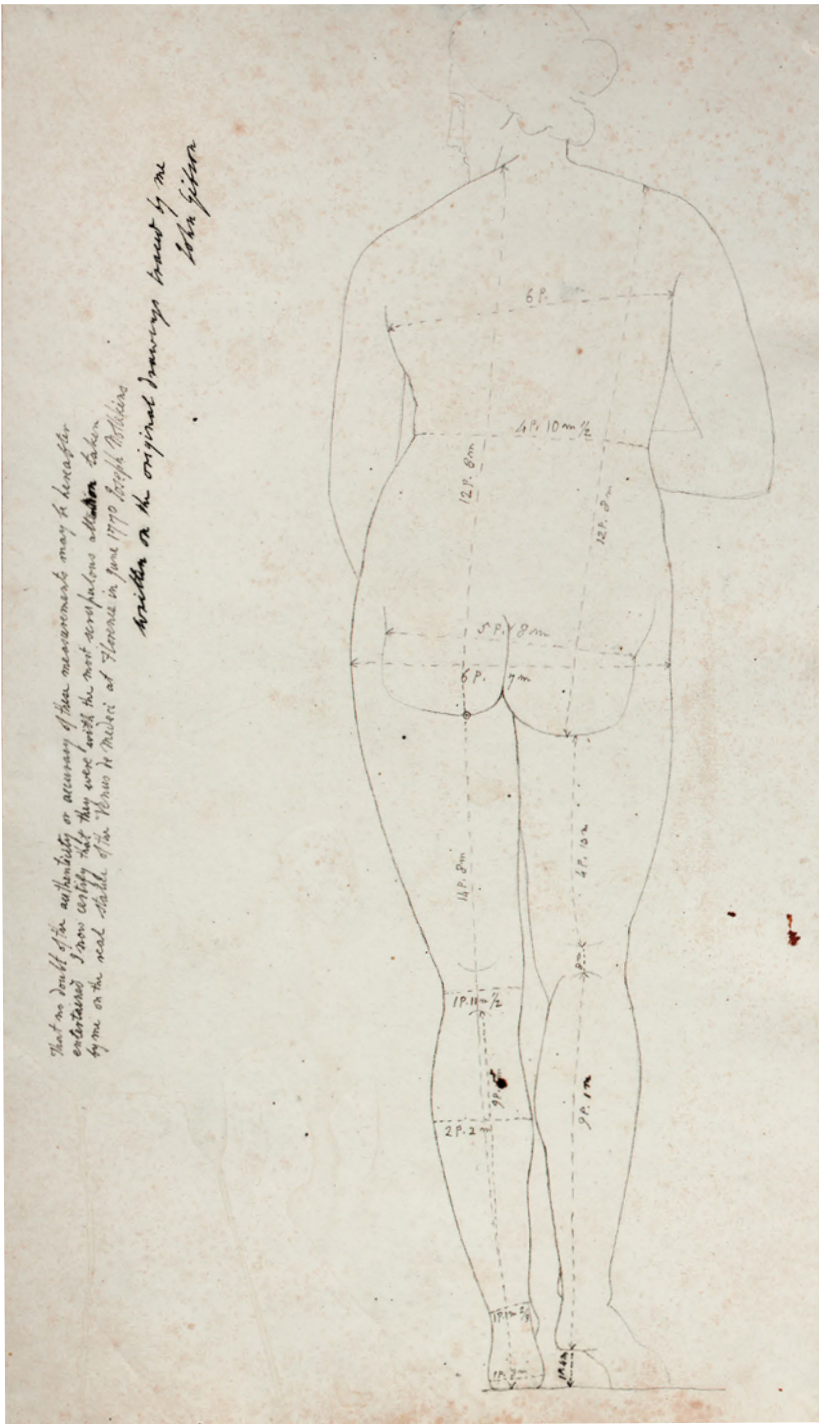 That no doubt of the authenticity or accuracy of these measurements may be hereafter
entertained I now certify that they were with the most scrupulous attention taken
by me on the real statue of the Venus de Medici at Florence in June 1770 Joseph Nollekins
written on the original drawings traced by me
John Gibson
6 P.
4 P. 10 m ½
12 P. 8 m
12 P. 8 m
5 P. 8 m
6 P. 7 m
14 P. 8 m
4 P. 10 m
8 m
1 P. 11 ½
9 P.
9 P. 1 m
2 P. 2
1 P.
1 P.